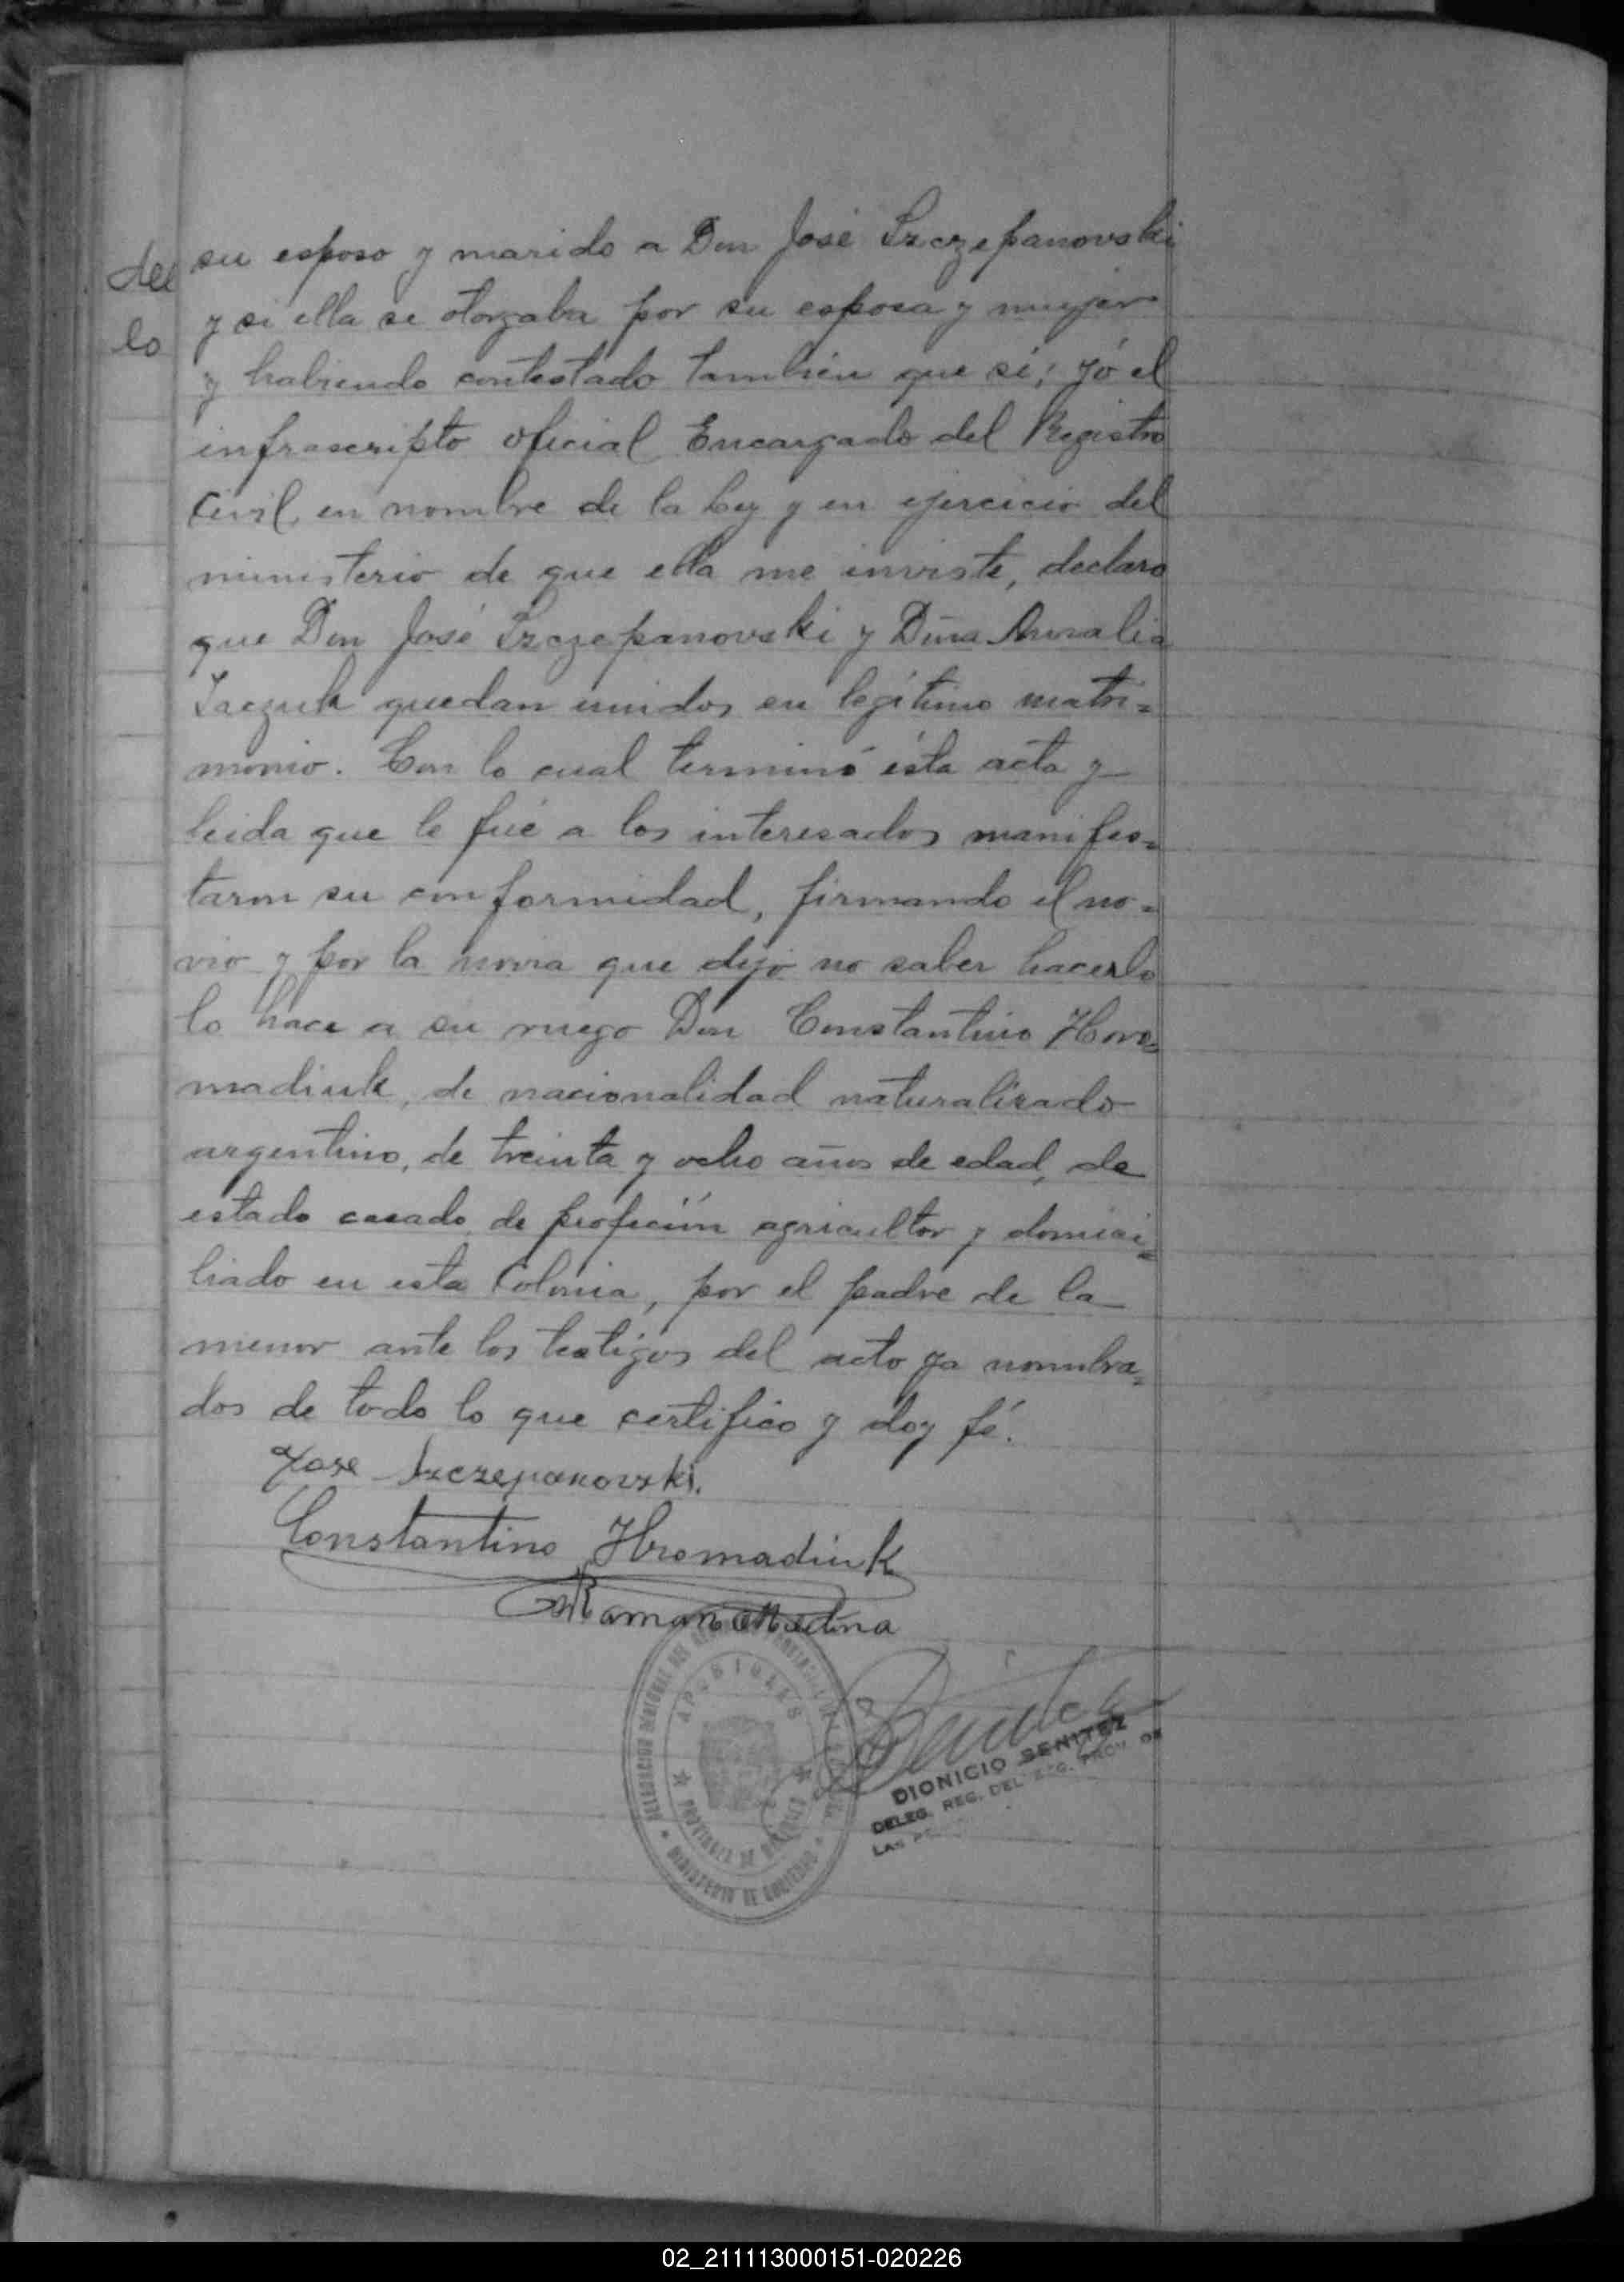 del
lo
su esposo y marido a Don José Szczepanovski
y si ella se otorgaba por su esposa y mujer
y habiendo contestado también que sí; yó el
infrascripto oficial Encargado del Registro
Civil, en nombre de la Ley y en ejercicio del
ministerio de que ella me inviste, declaro
que Don José Szczepanovski y Dña
quedan unidos en legítimo matri=
monio. Con lo cual terminó ésta acta y
leida que le fué a los interesados manifes=
taron su conformidad, firmando el no=
vio y por la novia que dijo no saber hacerlo
lo hace a su ruego Don Constantino Hro=
madiuk, de nacionalidad naturalizado
argentino, de treinta y ocho años de edad, de
estado casado, de profeción agricultor y domici=
liado en esta Colonia, por el padre de la
menor ante los testigos del acto ya nombra=
dos de todo lo que certifico y doy fé.
Jose Szczepanovski.
Constantino Hromadiuk
Raman Medina
APOSTOLES
PROVINCIA DE MISIONES
MINISTERIO DE GOBIERNO
Benitez
DIONICIO BENITEZ
DELEG. REG. DEL REG. PROV. DE
LAS
02_211113000151-020226